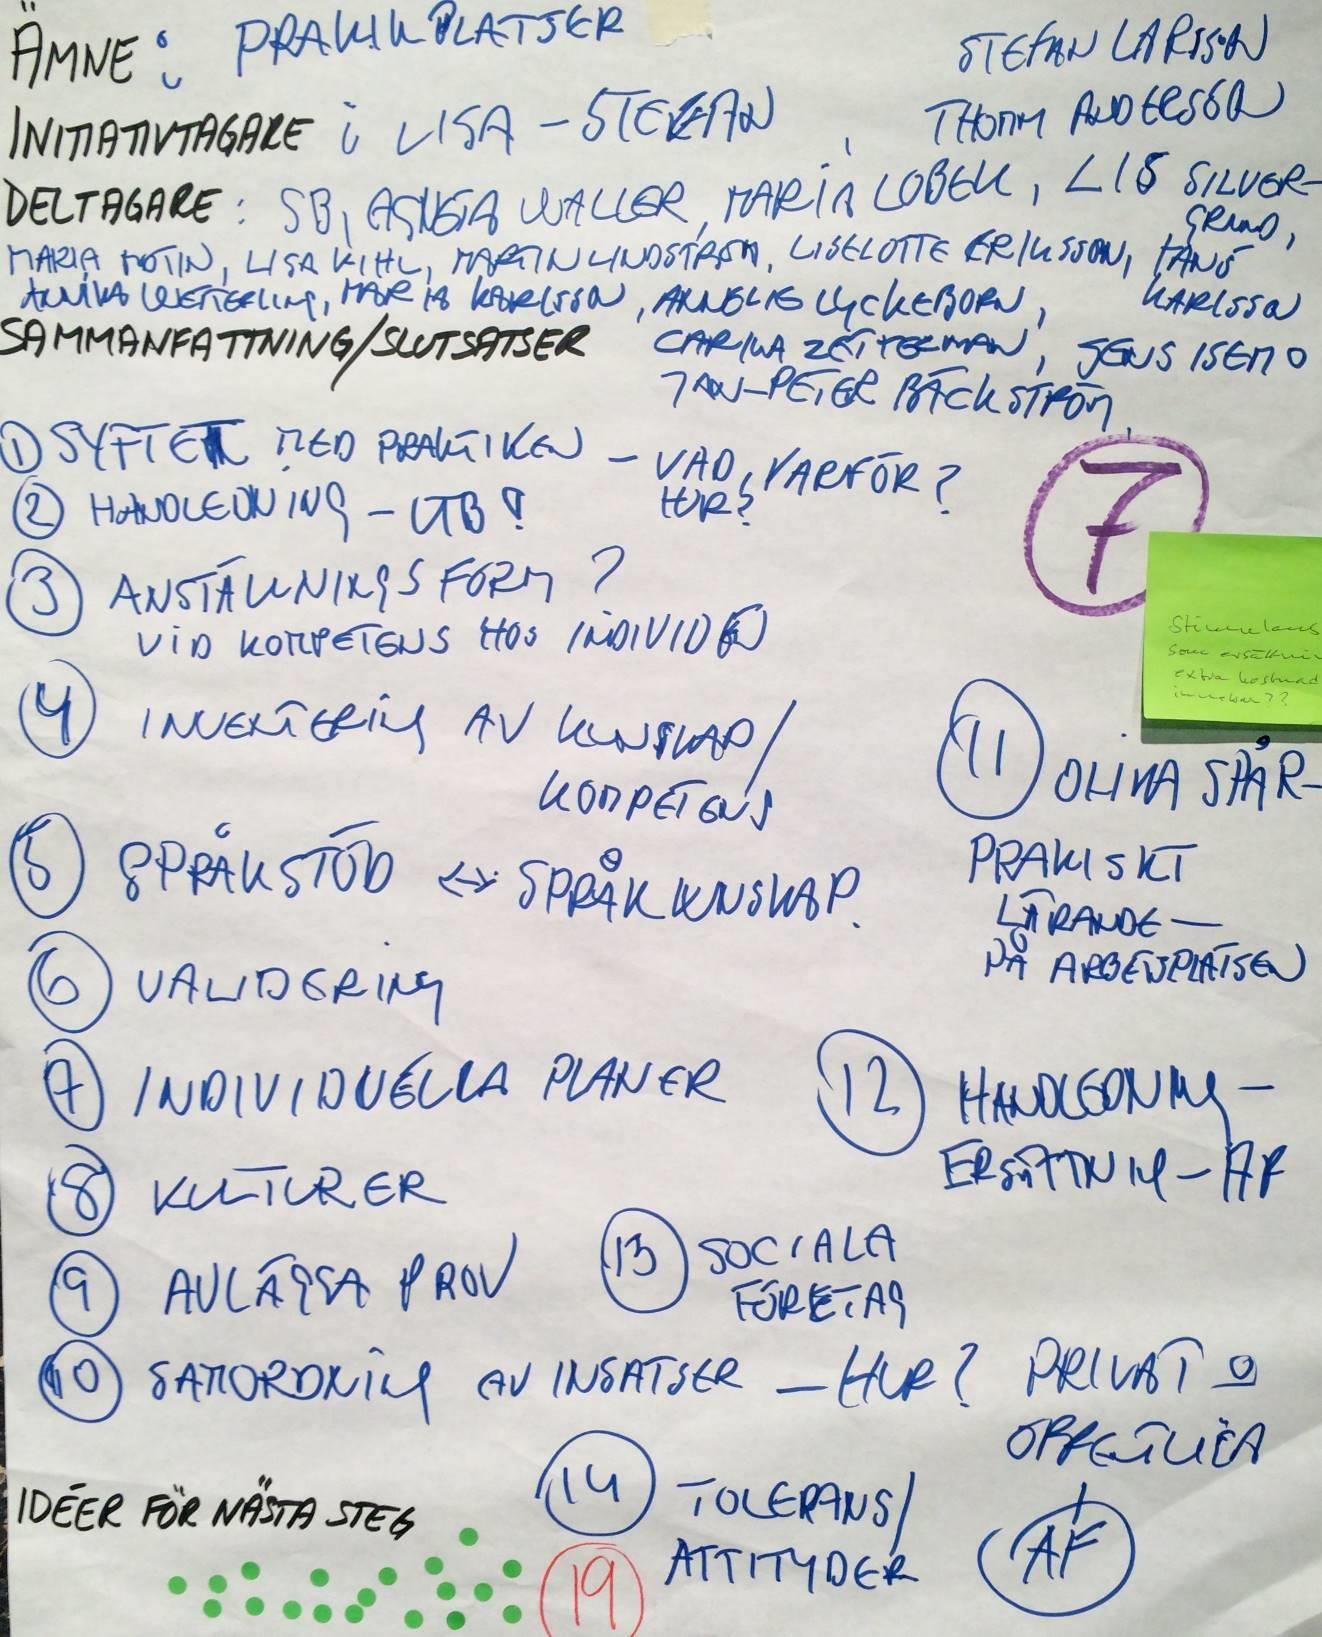 ÄMNE: PRAKIKPLATSER
STEFAN LARSSON
INITIATIVTAGARE: LISA - STEFAN, THOMM ANDERSSON
DELTAGARE: SB, AGNETA WALLER, MARIA LOBELL, LIS SILVER-
GRUND,
MARIA MOTIN, LISA KIHL, MARTIN LINDSTRÖM, LISELOTTE ERIKSSON, HANS
ANNIKA WETTERLING, MARIA KARLSSON, ANNELIE LYCKEBORN, KARLSSON
SAMMANFATTNING/SLUTSATSER CARINA ZETTERMAN, JENS ISEMO
JAN-PETER BÄCKSTRÖM,
1 SYFTET MED PRAKTIKEN - VAD, VARFÖR?
HUR?
2 HANDLEDNING - UTB!
7
3 ANSTÄLLNINGSFORM?
VID KOMPETENS HOS INDIVIDEN
som
extra kostnad
4 INVENTERING AV KUNSKAP/
KOMPETENS
11 OLIKA SPÅR-
PRAKISKT
LÄRANDE -
PÅ ARBETSPLATSEN
5 SPRÅKSTÖD <-> SPRÅKKUNSKAP.
6 VALIDERING
7 INDIVIDUELLA PLANER
12 HANDLEDNING -
ERSÄTTNING - AF
8 KULTURER
9 AVLÄGGA PROV
13 SOCIALA
FÖRETAG
10 SAMORDNING AV INSATSER - HUR? PRIVAT O
OFFENTLIGA
AF
14 TOLERANS/
ATTITYDER
IDÉER FÖR NÄSTA STEG
19